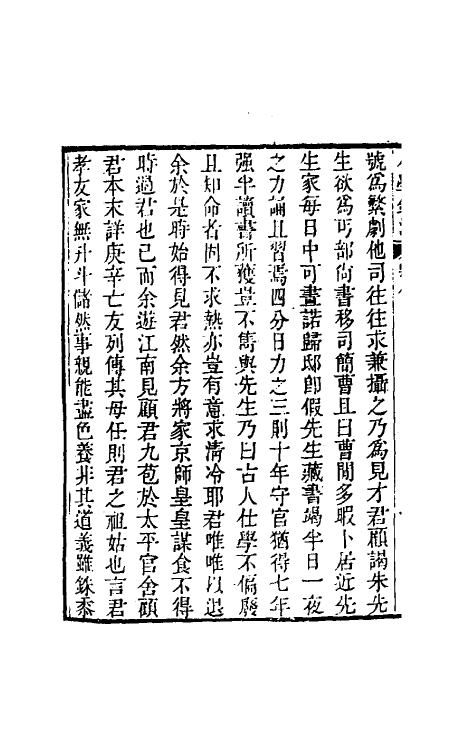 號爲繁劇他司往往求兼攝之乃爲見才君顧謁朱先
生欲爲丐部尚書移司簡曹且曰曹閒多暇卜居近先
生家每日中可畫諾歸邸卽假先生藏書竭半日一夜
之力誦且習焉四分日力之三則十年守官猶得七年
强半讀書所獲豈不雋與先生乃曰古人仕學不偏廢
且知命者固不求熱亦豈有意求清冷耶君唯唯以退
余於是時始得見君然余方將家京師皇皇謀食不得
時過君也已而余遊江南見顧君九苞於太平官舍顧
君本末詳庚辛亡友列傳其母任則君之祖姑也言君
孝友家無升斗儲然事親能盡色養非其道義雖銖黍